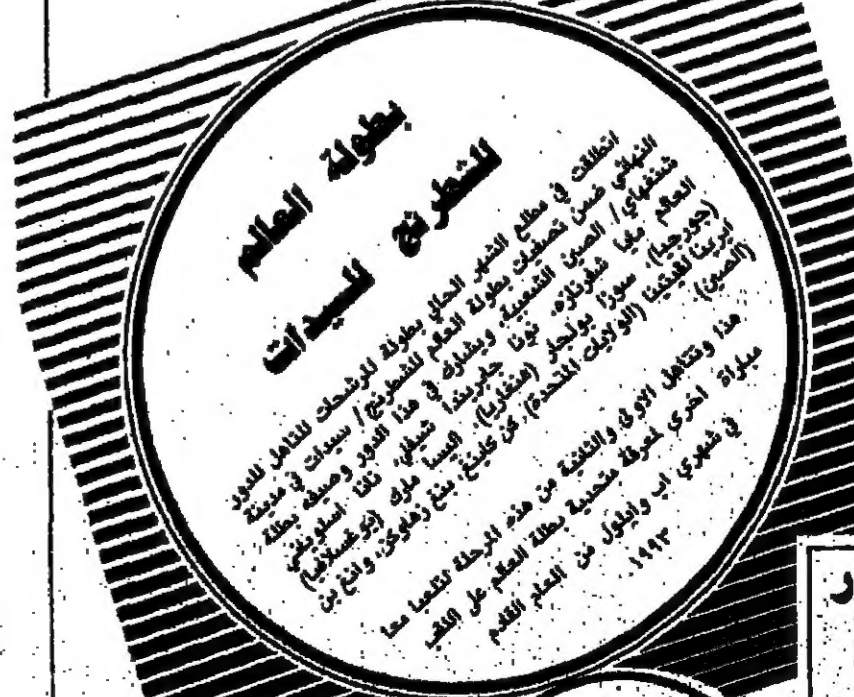 بطولة العالم
للشطرنج للسيدات
انطلقت في مطلع الشهر الحالي بطولة المرشحات للتاهل للدور
النهائي ضمن تصفيات بطولة العالم للشطرنج/ سيدات في مدينة
شنغهاي/ الصين الشعبية، ويشارك في هذا الدور وصيفه بطلة
العالم مايا شفرناره، نونا جابريندا شيفلي، نانا اسلونياني
(جورجيا)، سوزا بولجار (هنغاريا)، اليسا مارك (يوغسلافيا)
ايرينا لفيتينا (الولايات المتحدة)، كن كلينغ، بنغ زهاوكن، وانغ بن
(الصين).
هذا وتتاهل الاولى والثانية من هذه المرحلة لتلعبا معا
مباراة اخرى لمعرفة متحدية بطلة العالم على اللقب
في شهري اب وايلول من العام القادم
١٩٩٣.
ر